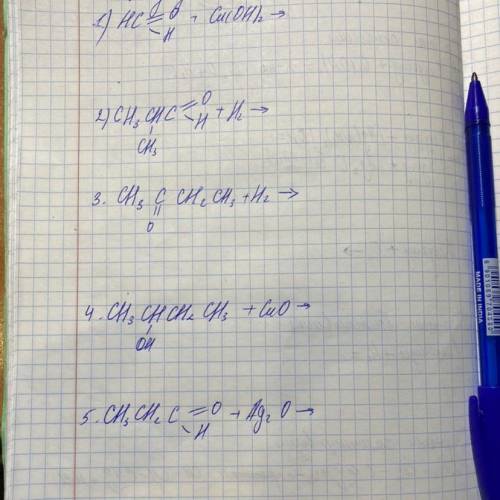 1) HC=O + Cu(OH)₂→
-H
2) CH₃ CH C=O + H₂→
-H
CH₃
3. CH₃ C CH₂CH₃ + H₂→
||
O
4. CH₃ CH CH₂ CH₃ + CuO→
OH
5. CH₃CH₂ C=O + Ag₂O→
-H
MADE IN INDIA